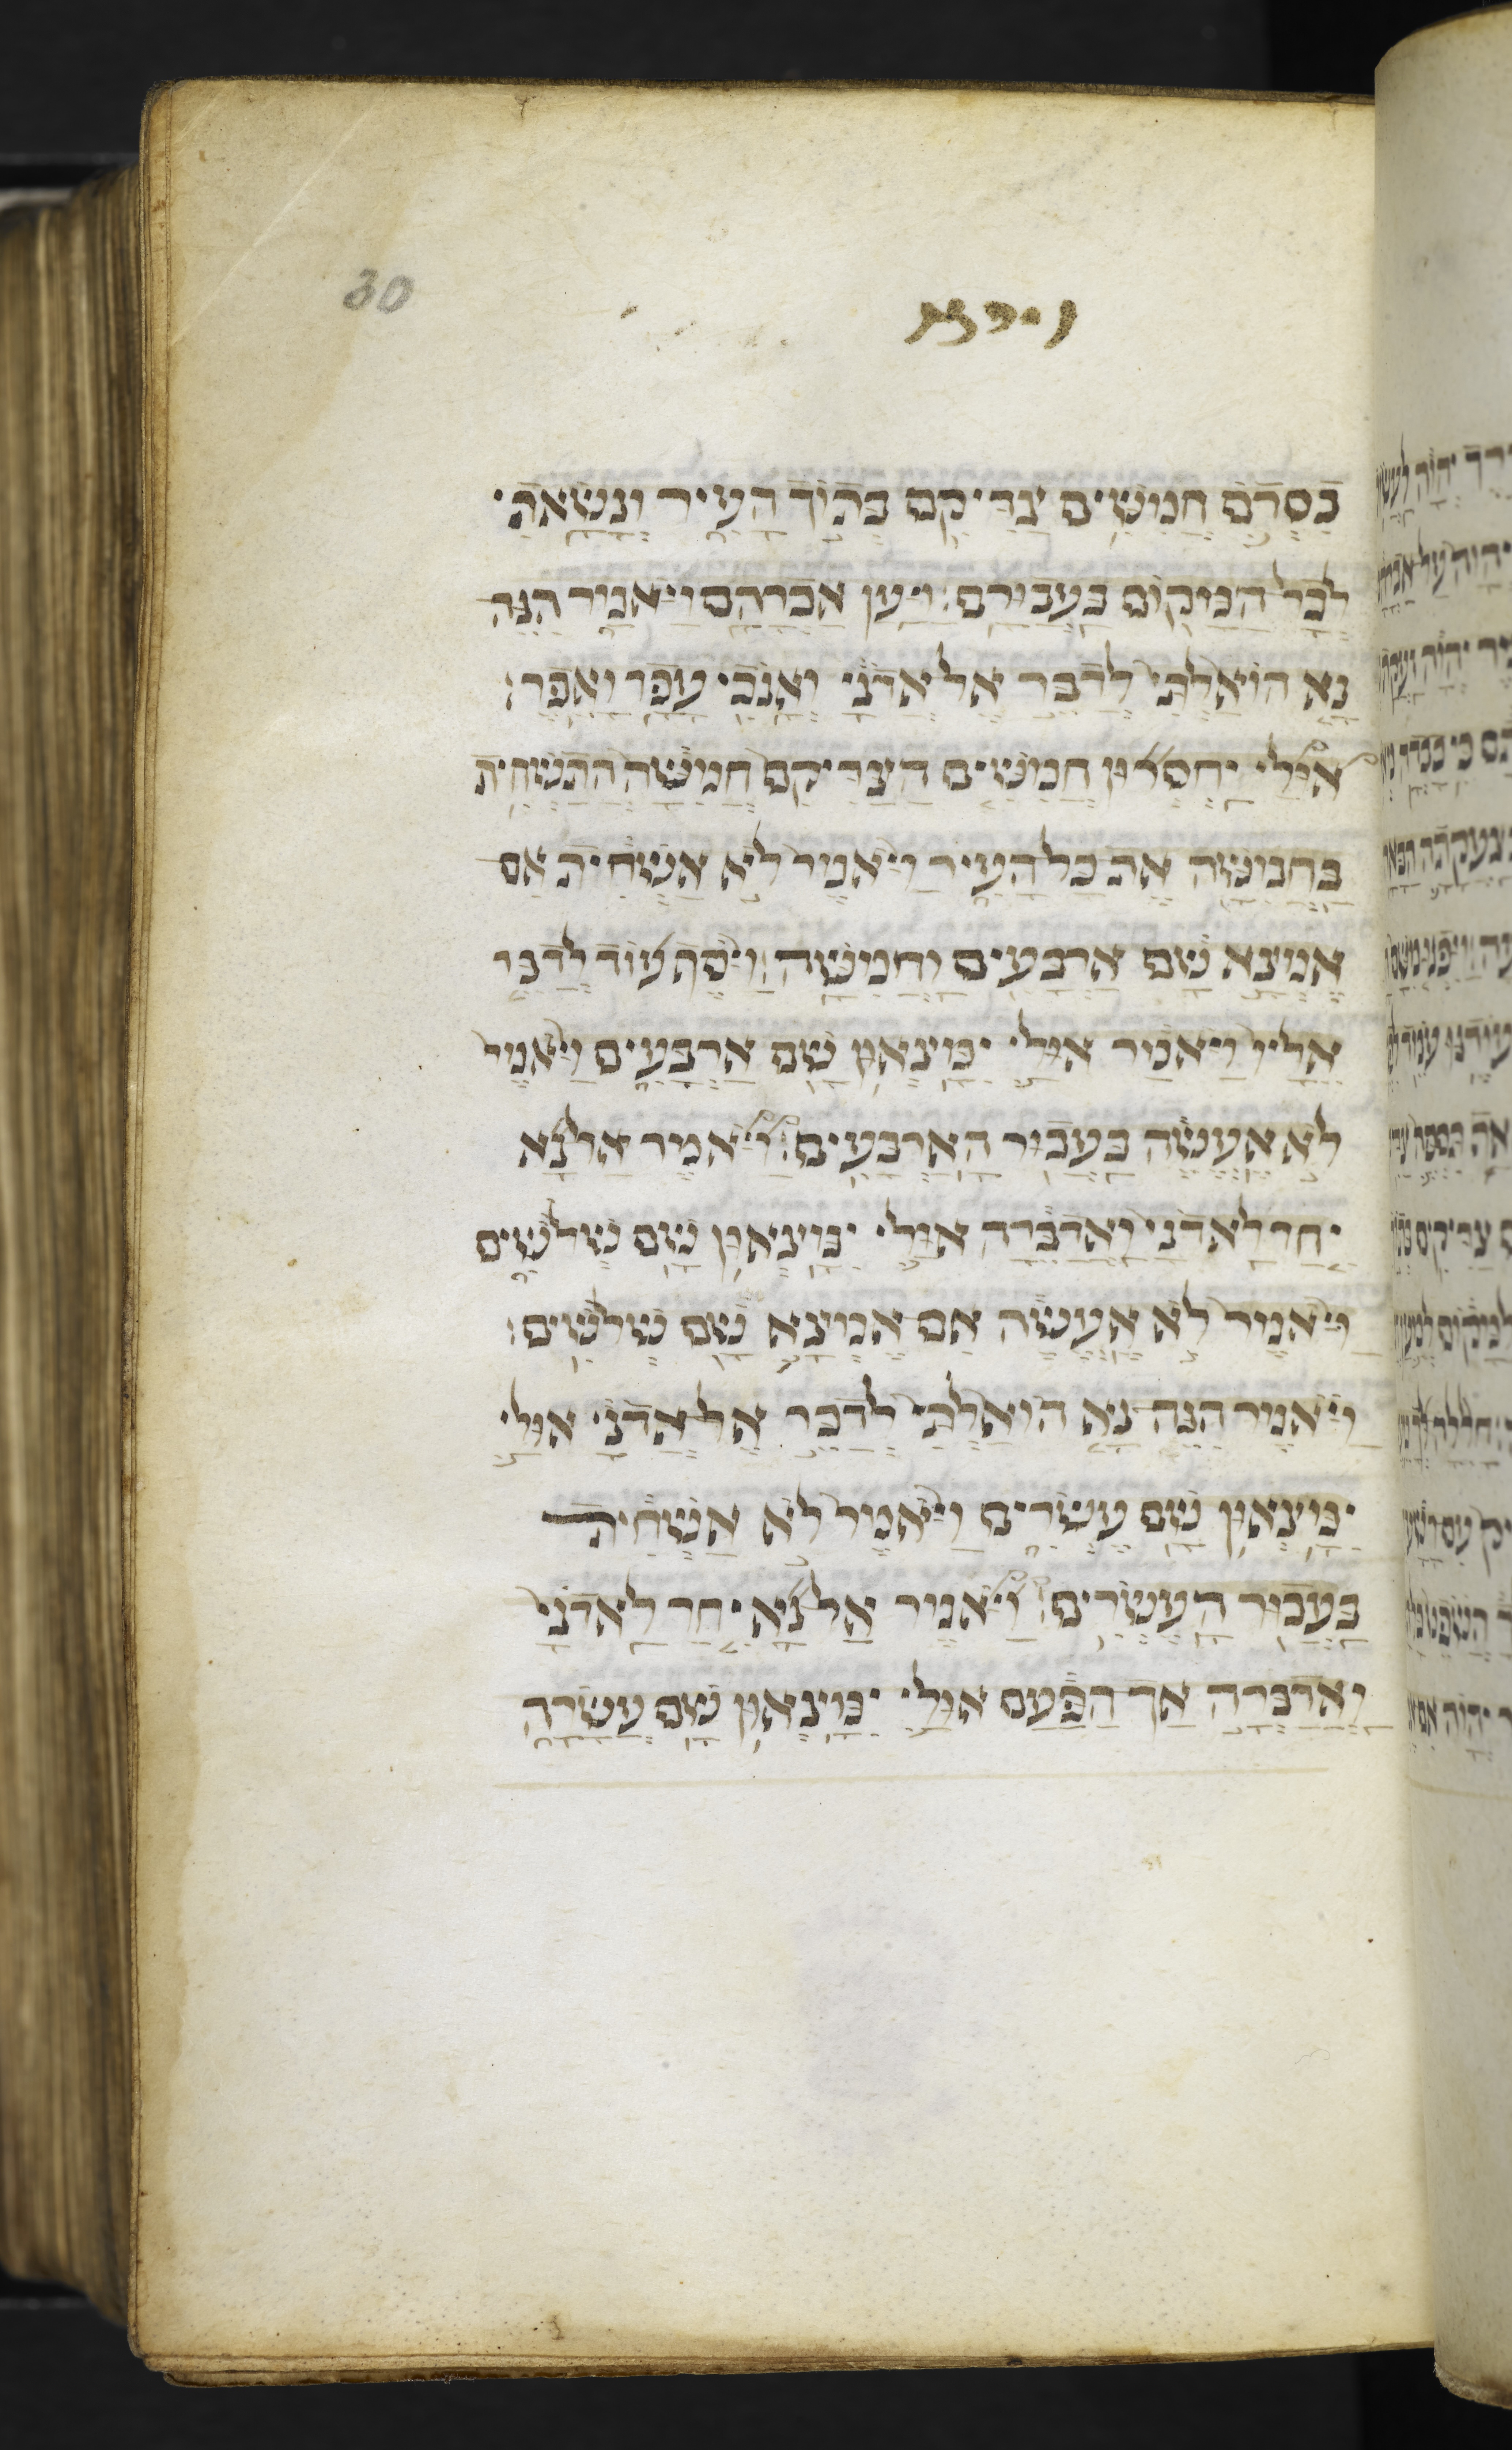 30
וירא
בִסְדֹם חֲמִשִּׁים צַדִּיקִם בְּתוֹךְ הָעִיר וְנָשָׂאתִי
לְכָל הַמָּקוֹם בַּעֲבוּרָם׃ וַיַּעַן אַבְרָהָם וַיֹּאמַר הִנֵּה
נָא הוֹאַלְתִּי לְדַבֵּר אֶל אֲדֹנָי וְאָנֹכִי עָפָר וָאֵפֶר׃
אוּלַי יַחְסְרוּן חֲמִשִּׁים הַצַּדִּיקִם חֲמִשָּׁה הֲתַשְׁחִית
בַּחֲמִשָּׁה אֶת כָּל הָעִיר וַיֹּאמֶר לֹא אַשְׁחִית אִם
אֶמְצָא שָׁם אַרְבָּעִים וַחֲמִשָּׁה׃ וַיֹּסֶף עוֹד לְדַבֵּר
אֵלָיו וַיֹּאמַר אוּלַי יִמָּצְאוּן שָׁם אַרְבָּעִים וַיֹּאמֶר
לֹא אֶעֱשֶׂה בַּעֲבוּר הָאַרְבָּעִים׃ וַיֹּאמֶר אַל נָא
יִחַר לַאדֹנָי וַאֲדַבֵּרָה אוּלַי יִמָּצְאוּן שָׁם שְׁלֹשִׁים
וַיֹּאמֶר לֹא אֶעֱשֶׂה אִם אֶמְצָא שָׁם שְׁלֹשִׁים׃
וַיֹּאמֶר הִנֵּה נָא הוֹאַלְתִּי לְדַבֵּר אֶל אֲדֹנָי אוּלַי
יִמָּצְאוּן שָׁם עֶשְׂרִים וַיֹּאמֶר לֹא אַשְׁחִית
בַּעֲבוּר הָעֶשְׂרִים׃ וַיֹּאמֶר אַל נָא יִחַר לַאדֹנָי
וַאֲדַבְּרָה אַךְ הַפַּעַם אוּלַי יִמָּצְאוּן שָׁם עֲשָׂרָה